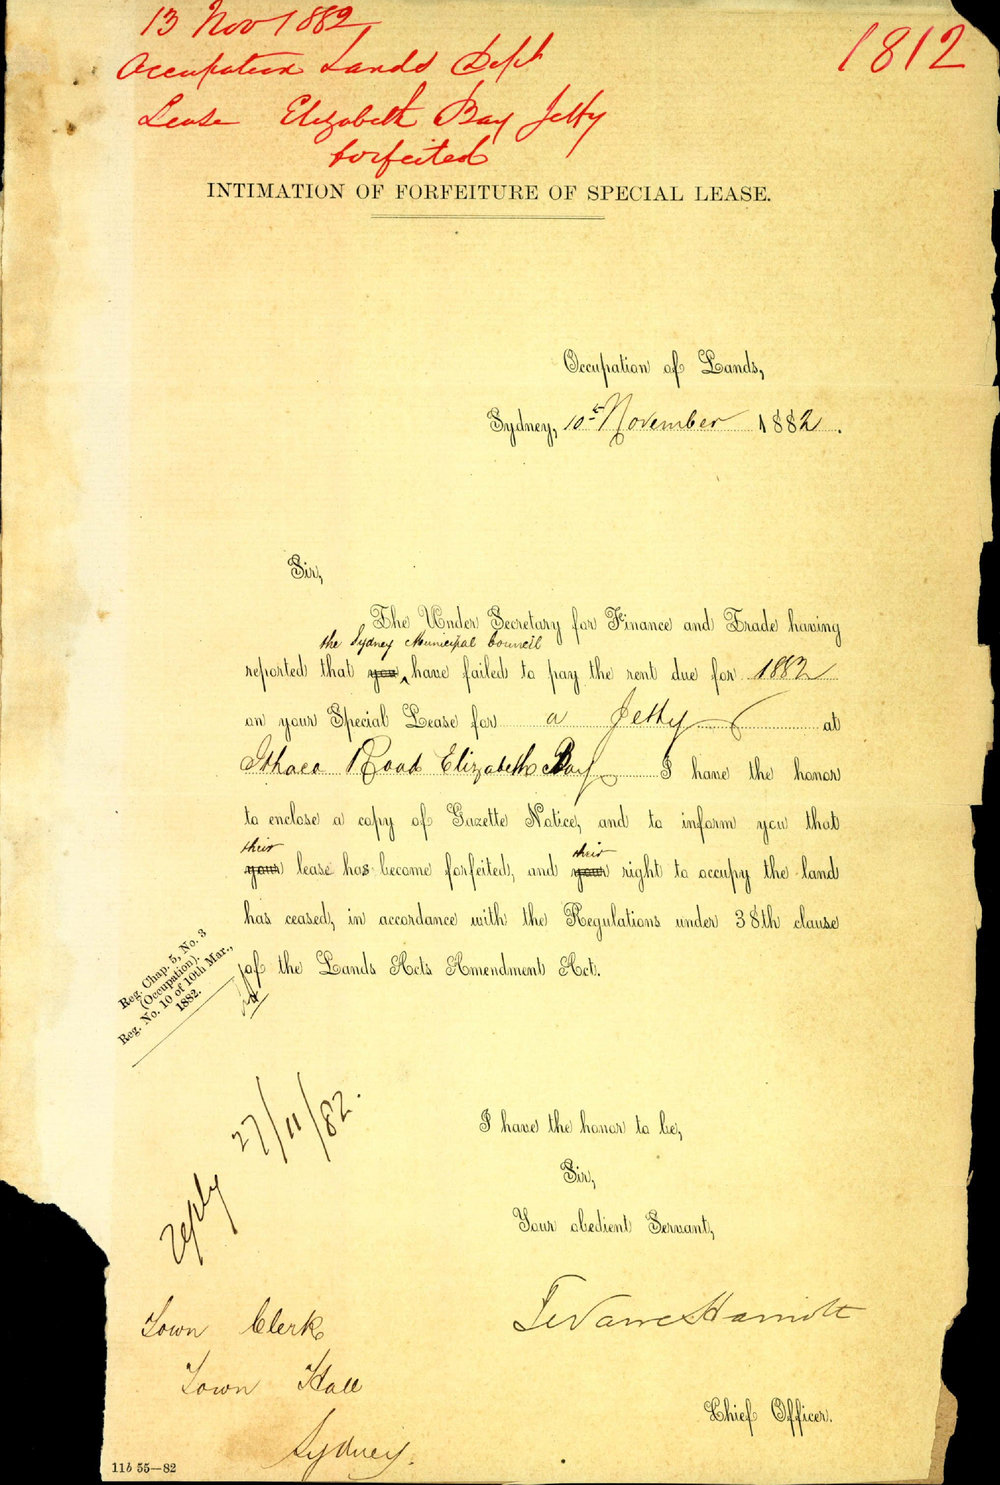 13 Nov 1882
1812
Occupation Lands Dept
Lease Elizabeth Bay Jetty
forfeited
INTIMATION OF FORFEITURE OF SPECIAL LEASE.
Occupation of Lands,
Sydney, 10th November 1882.
Sir,
The Under Secretary for Finance and Trade having
the Sydney Municipal Council
reported that you have failed to pay the rent due for 1882
on your Special Lease for a Jetty at
Ithaca Road Elizabeth Bay I have the honor
to enclose a copy of Gazette Notice, and to inform you that
their their
your lease has become forfeited, and your right to occupy the land
has ceased, in accordance with the Regulations under 38th clause
of the Lands Acts Amendment Act.
Reg. Chap. 5, No. 3
(Occupation).
Reg. No. 10 of 10th Mar.,
1882.
reply 27/11/82.
I have the honor to be,
Sir,
Your obedient Servant,
Chief Officer.
Town Clerk
Town Hall
Sydney.
11b 55—82